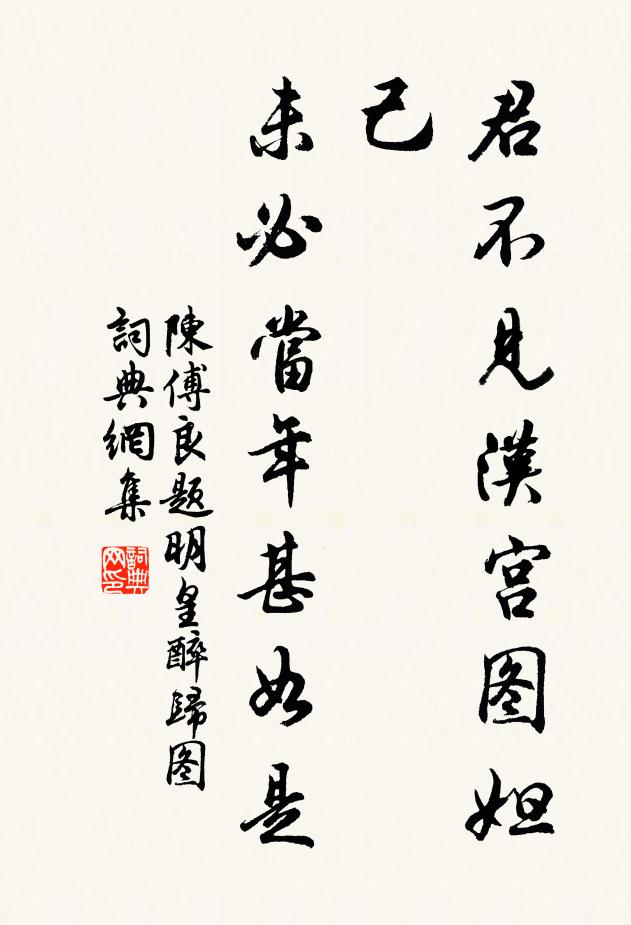 君不見漢宮图妲
己
未必當年甚如是
陳傅良题明皇醉歸图
詞典網集
詞典网印